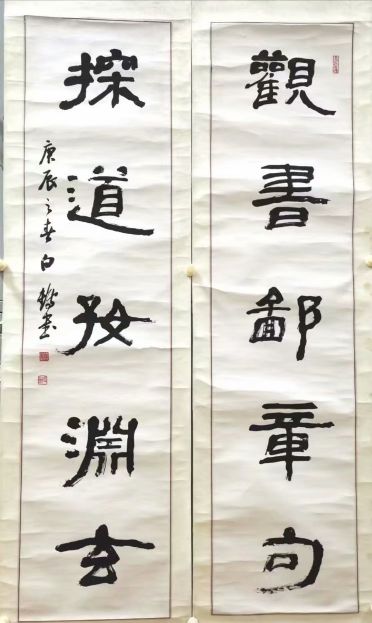 觀書鄙章句
探道好淵玄
庚辰之春白